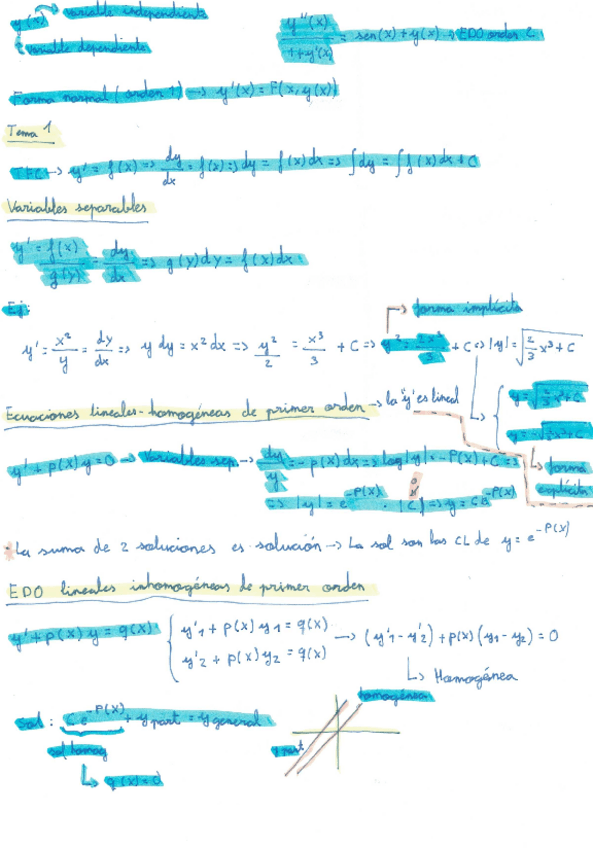 y(x) → variable independiente
↳ variable dependiente
y''(x) / 1+y'(x) = sen(x)+y(x) → EDO orden 2
Forma normal (orden 1) → y'(x) = F(x, y(x))
Tema 1
TFC → y' = f(x) => dy/dx = f(x) => dy = f(x)dx => ∫dy = ∫f(x)dx + C
Variables separables
y' = f(x)/g(y) = dy/dx => g(y)dy = f(x)dx
Ej:
→ forma implícita
y' = x²/y = dy/dx => y dy = x²dx => y²/2 = x³/3 + C => y² = 2x³/3 + C <=> |y| = √(2/3 x³ + C)
y = √(2/3 x³ + C)
y = -√(2/3 x³ + C)
↳ forma explícita
Ecuaciones lineales-homogéneas de primer orden → la "y" es lineal
y' + p(x)y = 0 → Variables sep. → dy/y = -p(x)dx => log|y| = -P(x) + C =>
=> |y| = e^-P(x) · |C| => y = C e^-P(x)
* La suma de 2 soluciones es solución → La sol son las CL de y = e^-P(x)
EDO lineales inhomogéneas de primer orden
y' + p(x)y = q(x) { y'1 + p(x)y1 = q(x)
y'2 + p(x)y2 = q(x) → (y'1 - y'2) + p(x)(y1 - y2) = 0
↳ Homogénea
Sol: C e^-P(x) + y part = y general
sol homog
↳ q(x) = 0
homogénea
y part